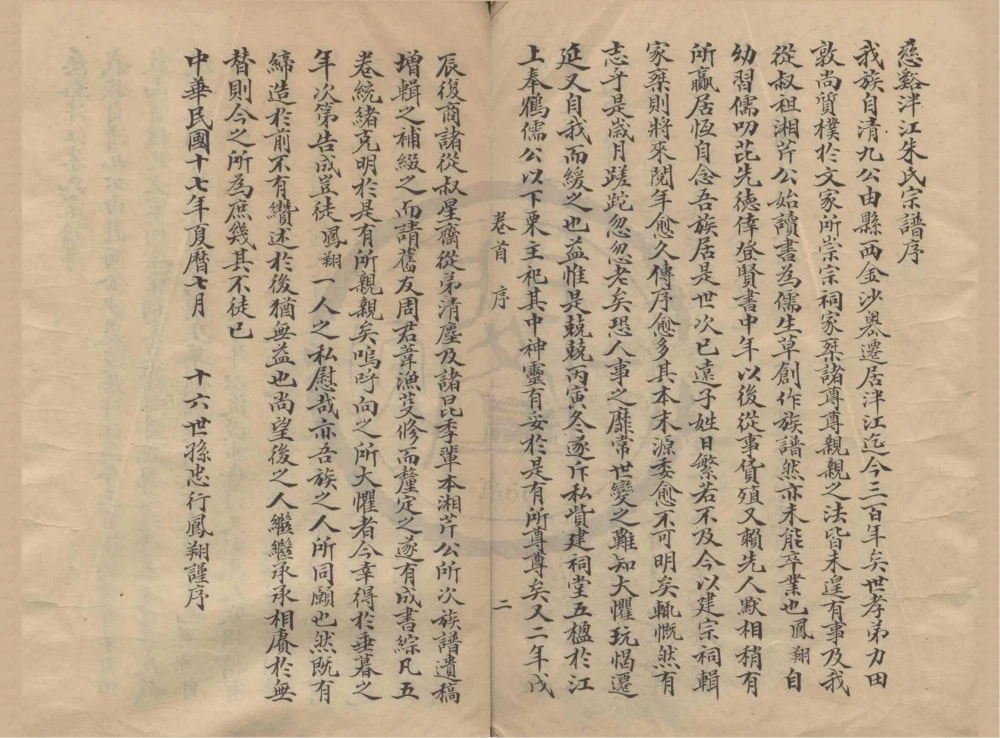 慈谿泮江朱氏宗譜序
我族自清九公由縣西金沙嶴遷居泮江迄今三百年矣世孝弟力田
敦尚質樸於文家所崇宗祠家椉諸尊尊親親之法皆未遑有事及我
從叔祖湘芹公始讀書為儒生草創作族譜然亦未能卒業也鳳翔自
幼習儒叨芘先徳倖登賢書中年以後從事貨殖又賴先人默相稍有
所贏居恆自念吾族居是世次已遠子姓日繁若不及今以建宗祠輯
家椉則將來閱年愈久傳序愈多其本末源委愈不可明矣輒慨然有
志乎是歲月蹉跎忽忽老矣恐人事之靡常世變之難知大懼玩愒遷
延又自我而緩之也益惟是兢兢丙寅冬遂斥私貲建祠堂五楹於江
上奉鶴儒公以下栗主祀其中神靈有妥於是有所尊尊矣又二年戊
卷首 序 二
辰復商諸從叔星齋從弟清塵及諸昆季輩本湘芹公所次族譜遺稿
增輯之補綴之而請舊友周君葦漁芟修而釐定之遂有成書綜凡五
卷統緒克明於是有所親親矣嗚呼向之所大懼者今幸得於垂暮之
年次第告成豈徒鳳翔一人之私慰哉亦吾族之人所同願也然既有
締造於前不有纘述於後猶無益也尚望後之人繼繼承承相賡於無
替則今之所為庶幾其不徒已
中華民國十七年夏曆七月 十六世孫忠行鳳翔謹序